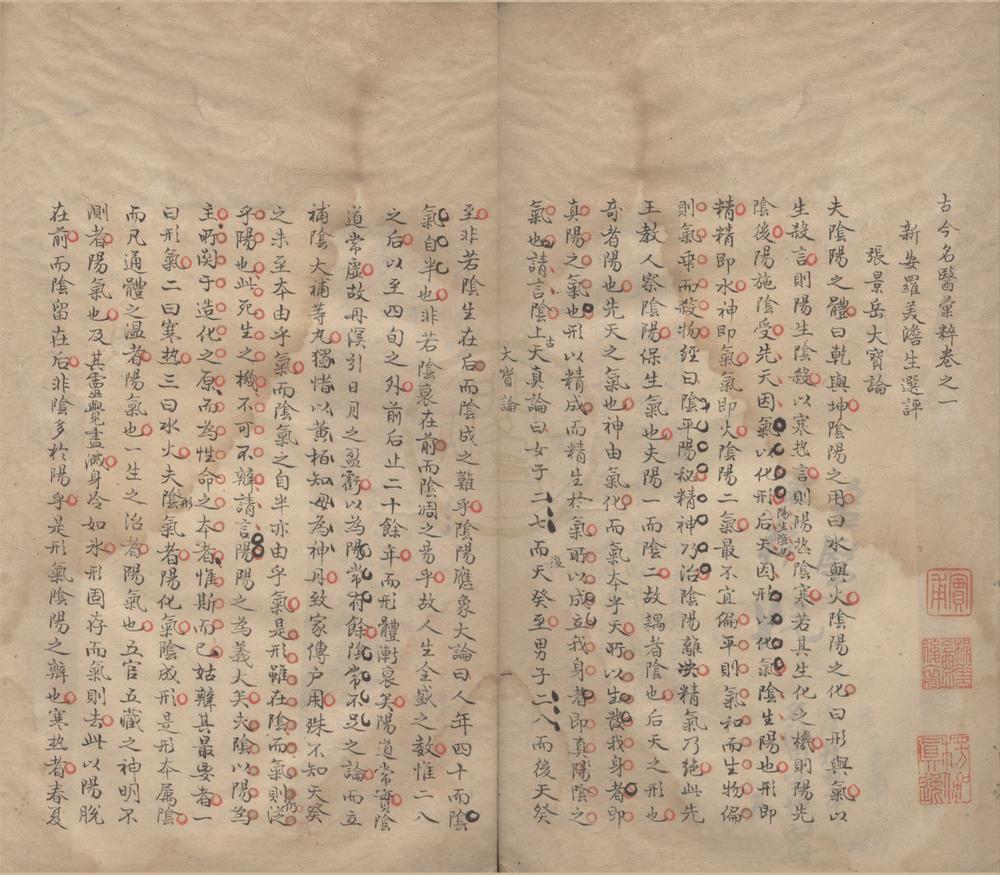 古今名醫彙粹卷之一
新安羅美澹生選評
張景岳大寶論
夫陰陽之體曰乾與坤陰陽之用曰水與火陰陽之化曰形與氣以
生殺言則陽生陰殺以寒热言則陽热陰寒若其生化之機則陽先
陰後陽施陰受先天因氣以化形陽生陰也后天因形以化氣陰生陽也形即
精精即水神即氣氣即火陰陽二氣最不宜偏平則氣和而生物偏
則氣乖而殺物經曰陰平陽秘精神乃治陰陽離决精氣乃絶此先
王教人察陰陽保生氣也夫陽一而陰二故耦者陰也后天之形也
奇者陽也先天之氣也神由氣化而氣本乎天所以生發我身者即
真陽之氣也形以精成而精生於氣所以成立我身者即真陰之
氣也請言陰上古天真論曰女子二七而天癸至男子二八而後天癸
後
大寶論
一
至非若陰生在后而陰成之難乎陰陽應象大論曰人年四十而陰
氣自半也非若陰衰在前而陰凋之易乎故人生全盛之數惟二八
之后以至四旬之外前后止二十餘年而形體漸衰矣陽道常實陰
道常虛故丹溪引日月之盈虧以為陽常有餘陰常不足之論而立
補陰大補等丸獨惜以黃栢知母為神丹致家傳户用殊不知天癸
之未至本由乎氣而陰氣之自半亦由乎氣是形雖在陰而氣則從
乎陽也此死生之機不可不辨請言陽陽之為義大矣夫陰以陽為
主所関于造化之原而為性命之本者惟斯而已姑辨其最要者一
曰形氣二曰寒热三曰水火夫形陰氣者陽化氣陰成形是形本属陰
而凡通體之温者陽氣也一生之治者陽氣也五官五藏之神明不
測者陽氣也及其盡覺盡滅身冷如氷形固存而氣則去此以陽脱
在前而陰留在后非陰多於陽乎是形氣陰陽之辨也寒热者春夏